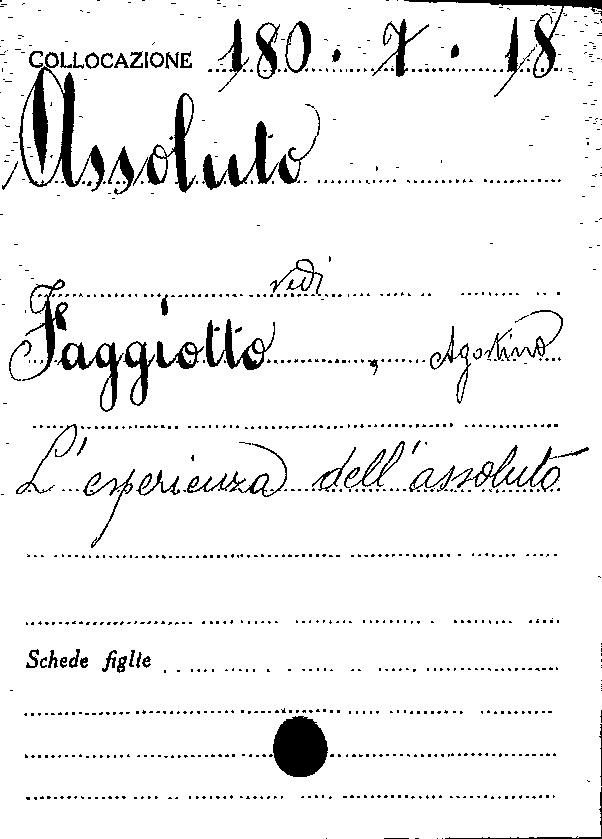 COLLOCAZIONE 180 . 7 . 18
Assoluto
vedi
Faggiotto , Agostino
L'esperienza dell'assoluto
Schede figlie